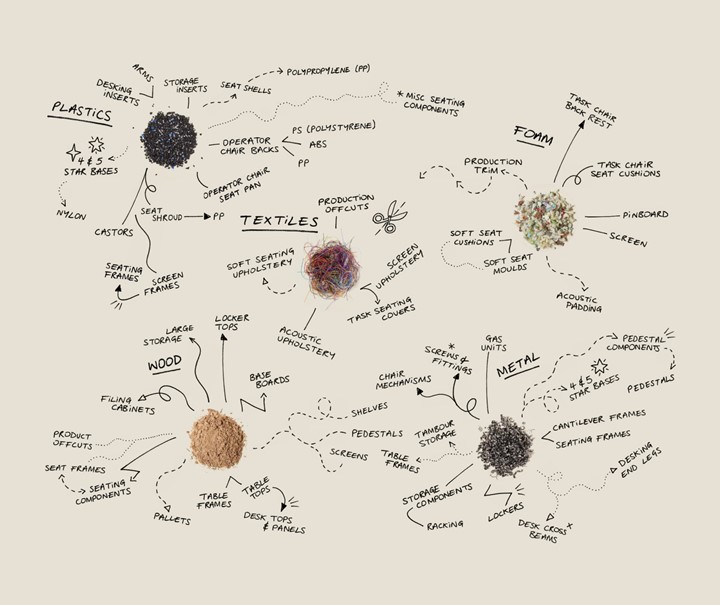 PLASTICS
ARMS
DESKING
INSERTS
STORAGE
INSERTS
SEAT SHELLS
POLYPROPYLENE (PP)
* MISC SEATING
COMPONENTS
OPERATOR
CHAIR BACKS
PS (POLYSTYRENE)
ABS
PP
OPERATOR CHAIR
SEAT PAN
4 & 5
STAR BASES
NYLON
CASTORS
SEAT
SHROUD
PP
SEATING
FRAMES
SCREEN
FRAMES
TEXTILES
PRODUCTION
OFFCUTS
SOFT SEATING
UPHOLSTERY
SCREEN
UPHOLSTERY
TASK SEATING
COVERS
ACOUSTIC
UPHOLSTERY
FOAM
TASK CHAIR
BACK REST
PRODUCTION
TRIM
TASK CHAIR
SEAT CUSHIONS
PINBOARD
SCREEN
SOFT SEAT
CUSHIONS
SOFT SEAT
MOULDS
ACOUSTIC
PADDING
WOOD
LARGE
STORAGE
LOCKER
TOPS
BASE
BOARDS
FILING
CABINETS
PRODUCT
OFFCUTS
SEAT FRAMES
SEATING
COMPONENTS
PALLETS
TABLE
FRAMES
TABLE
TOPS
DESK TOPS
& PANELS
SHELVES
PEDESTALS
SCREENS
METAL
GAS
UNITS
*
SCREWS &
FITTINGS
CHAIR
MECHANISMS
PEDESTAL
COMPONENTS
PEDESTALS
4 & 5
STAR BASES
CANTILEVER FRAMES
SEATING FRAMES
TAMBOUR
STORAGE
TABLE
FRAMES
STORAGE
COMPONENTS
RACKING
LOCKERS
DESKING
END LEGS
DESK CROSS x
BEAMS